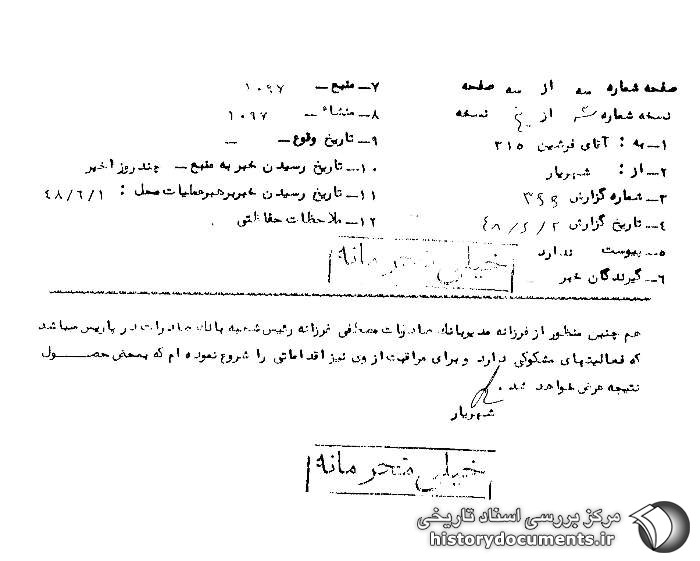 صفحه شماره سه از سه صفحه
نسخه شماره از نسخه
۱ــ به : آقای فرشین ۳۱۵
۲ــ از : شهریار
۳ــ شماره گزارش ۳۹۹
۴ــ تاریخ گزارش ۴۸/۶/۲
۵ــ پیوست ندارد
۶ــ گیرندگان خبر
۷ــ منبع ــ ۱۰۹۷
۸ــ منشاء ــ ۱۰۹۷
۹ــ تاریخ وقوع ــ
۱۰ــ تاریخ رسیدن خبر به منبع ــ چند روز اخیر
۱۱ــ تاریخ رسیدن خبر برهبر عملیات محل : ۴۸/۶/۱
۱۲ــ ملاحظات حفاظتی .
خیلی محرمانه
هم چنین منظور از فرزانه مدیر بانک صادرات مصطفی فرزانه رئیس شعبه بانک صادرات در پاریس میباشد
که فعالیتهای مشکوکی دارد و برای مراقبت از وی نیز اقداماتی را شروع نموده ام که بمحض حصول
نتیجه عرض خواهد شد .
شهریار
خیلی محرمانه
مرکز بررسی اسناد تاریخی
historydocuments.ir